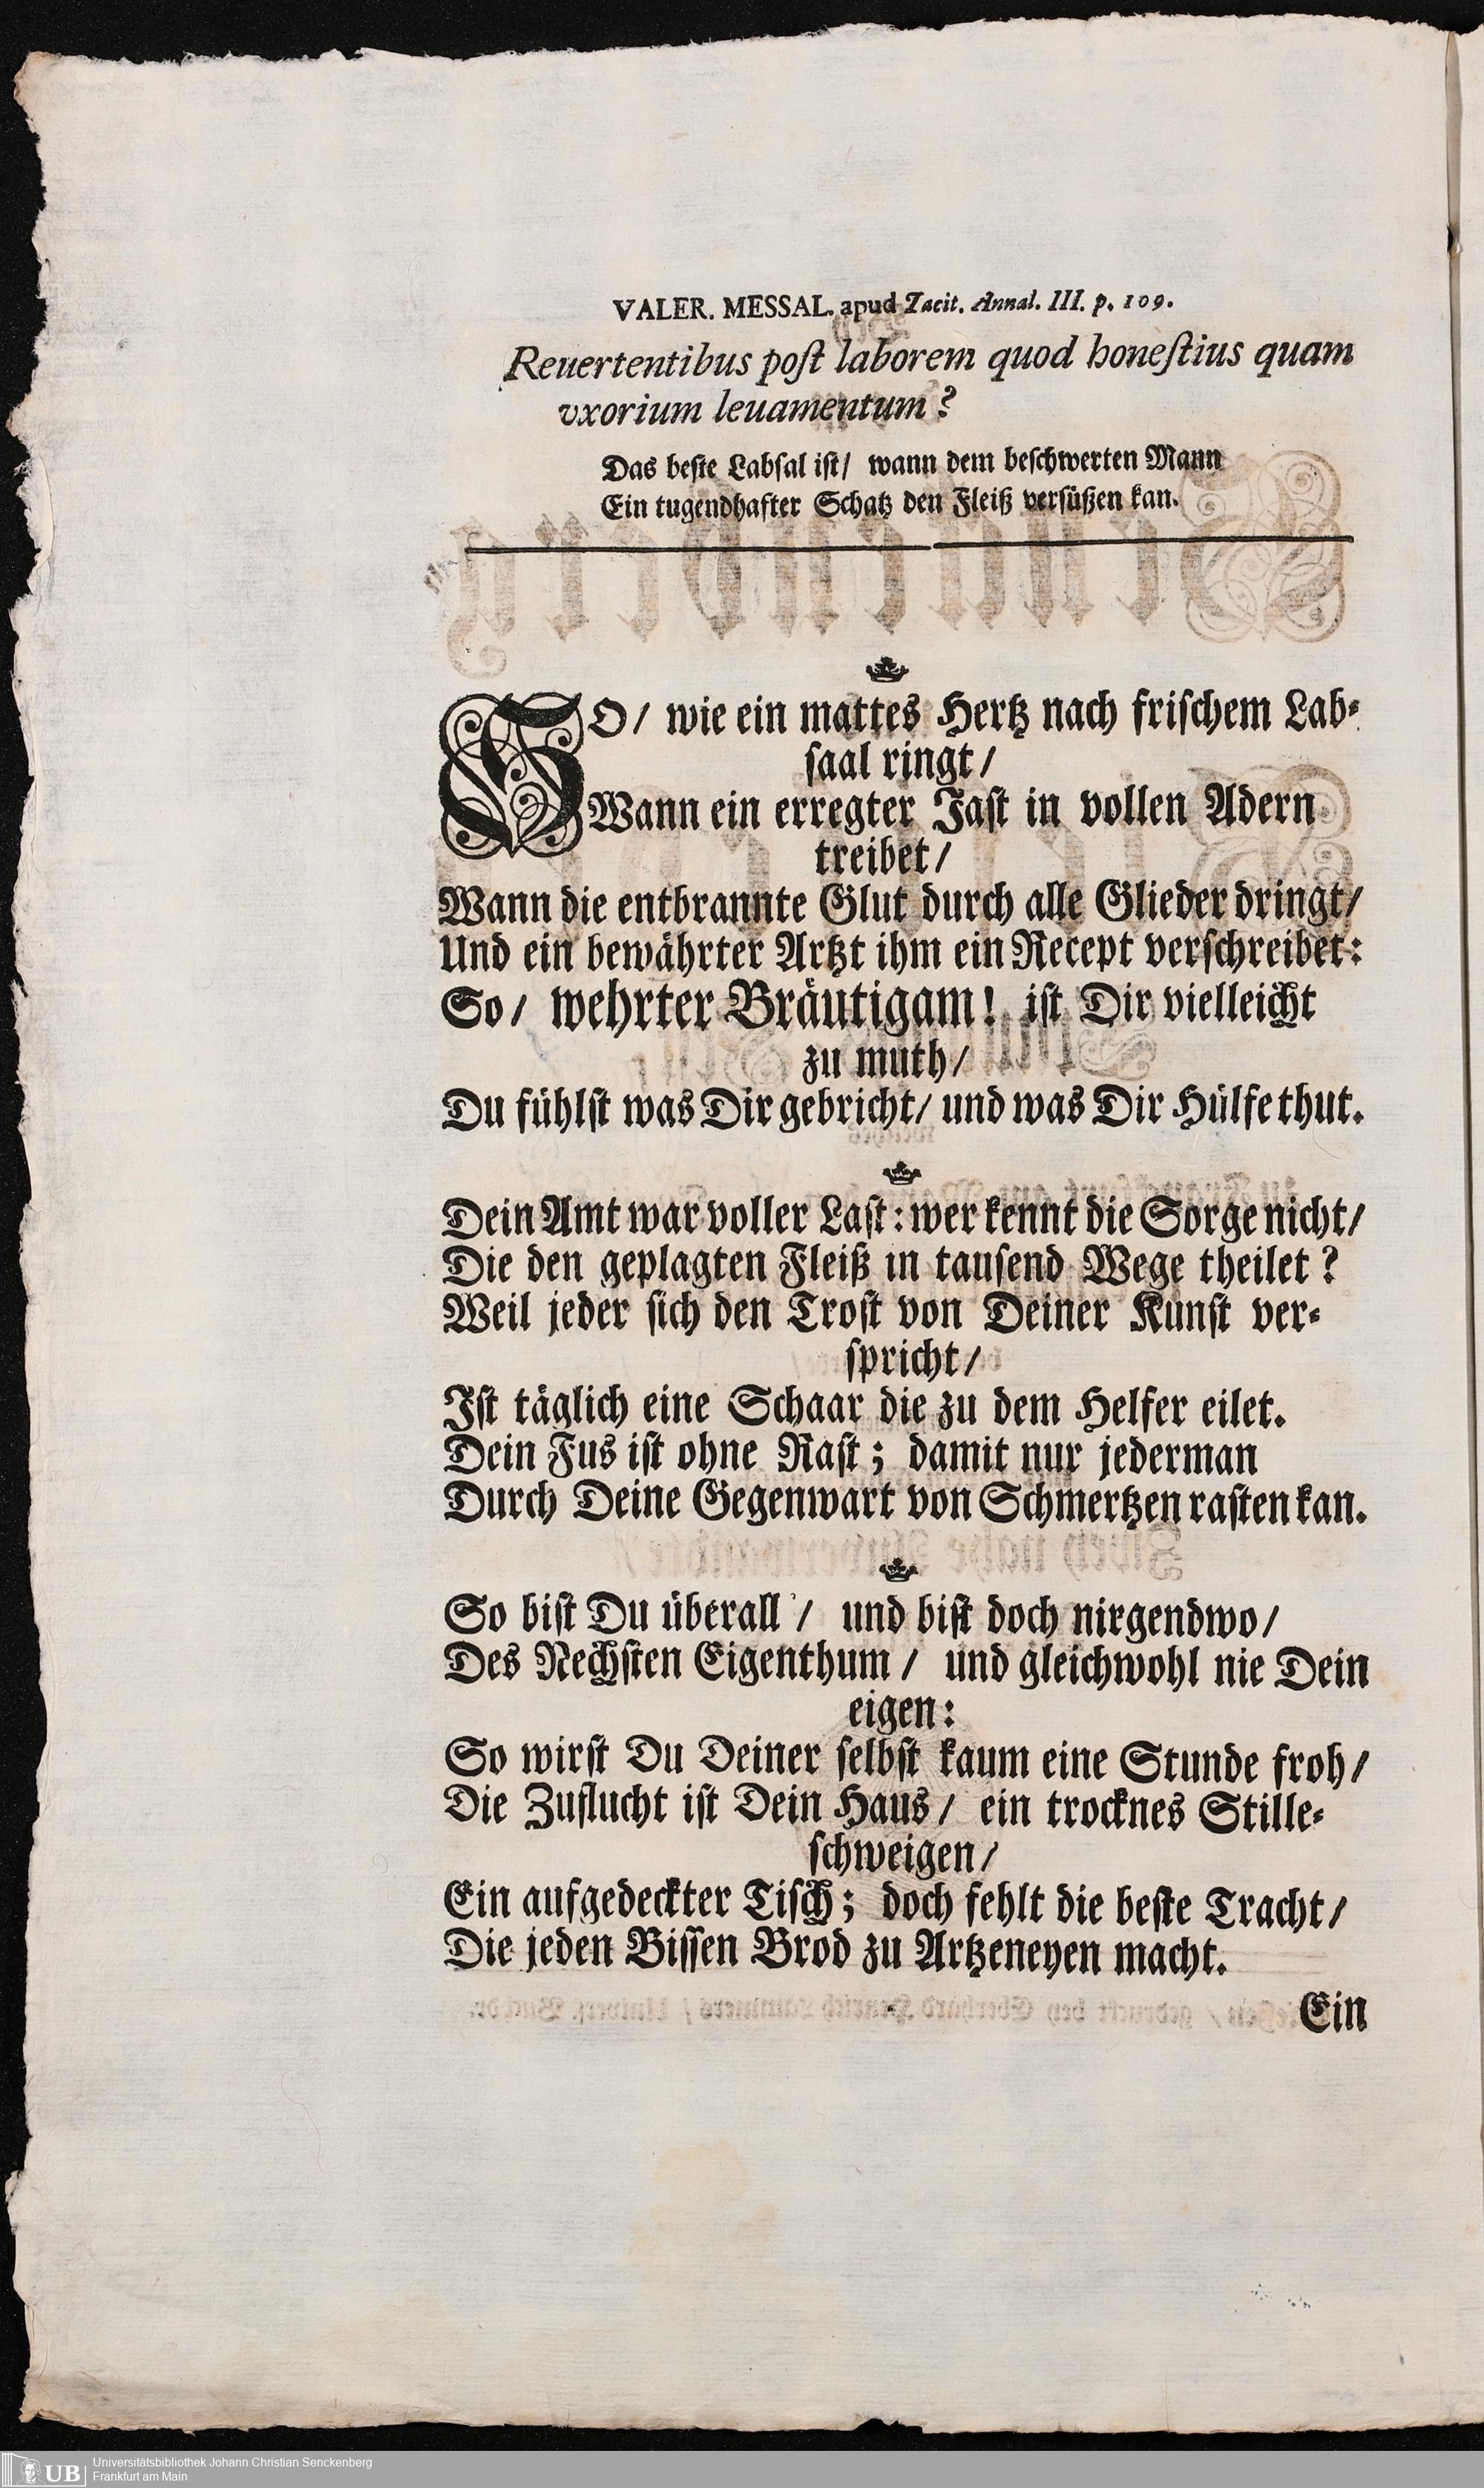 VALER. MESSAL. apud Tacit. Annal. III. p. 109.
Reuertentibus poſt laborem quod honeſtius quam
vxorium leuamentum?
Das beſte Labſal iſt/ wann dem beſchwerten Mann
Ein tugendhafter Schatz den Fleiß verſüßen kan.
SO/ wie ein mattes Hertz nach friſchem Lab-
ſaal ringt/
Wann ein erregter Jaſt in vollen Adern
treibet/
Wann die entbrannte Glut durch alle Glieder dringt/
Und ein bewährter Artzt ihm ein Recept verſchreibet:
So/ wehrter Bräutigam! iſt Dir vielleicht
zu muth/
Du fühlſt was Dir gebricht/ und was Dir Hülfe thut.
Dein Amt war voller Laſt: wer kennt die Sorge nicht/
Die den geplagten Fleiß in tauſend Wege theilet?
Weil jeder ſich den Troſt von Deiner Kunſt ver-
ſpricht/
Iſt täglich eine Schaar die zu dem Helfer eilet.
Dein Fus iſt ohne Raſt; damit nur jederman
Durch Deine Gegenwart von Schmertzen raſten kan.
So biſt Du überall/ und biſt doch nirgendwo/
Des Nechſten Eigenthum/ und gleichwohl nie Dein
eigen:
So wirſt Du Deiner ſelbſt kaum eine Stunde froh/
Die Zuflucht iſt Dein Haus/ ein trocknes Stille-
ſchweigen/
Ein aufgedeckter Tiſch; doch fehlt die beſte Tracht/
Die jeden Biſſen Brod zu Artzeneyen macht.
Ein
UB
Universitätsbibliothek Johann Christian Senckenberg
Frankfurt am Main